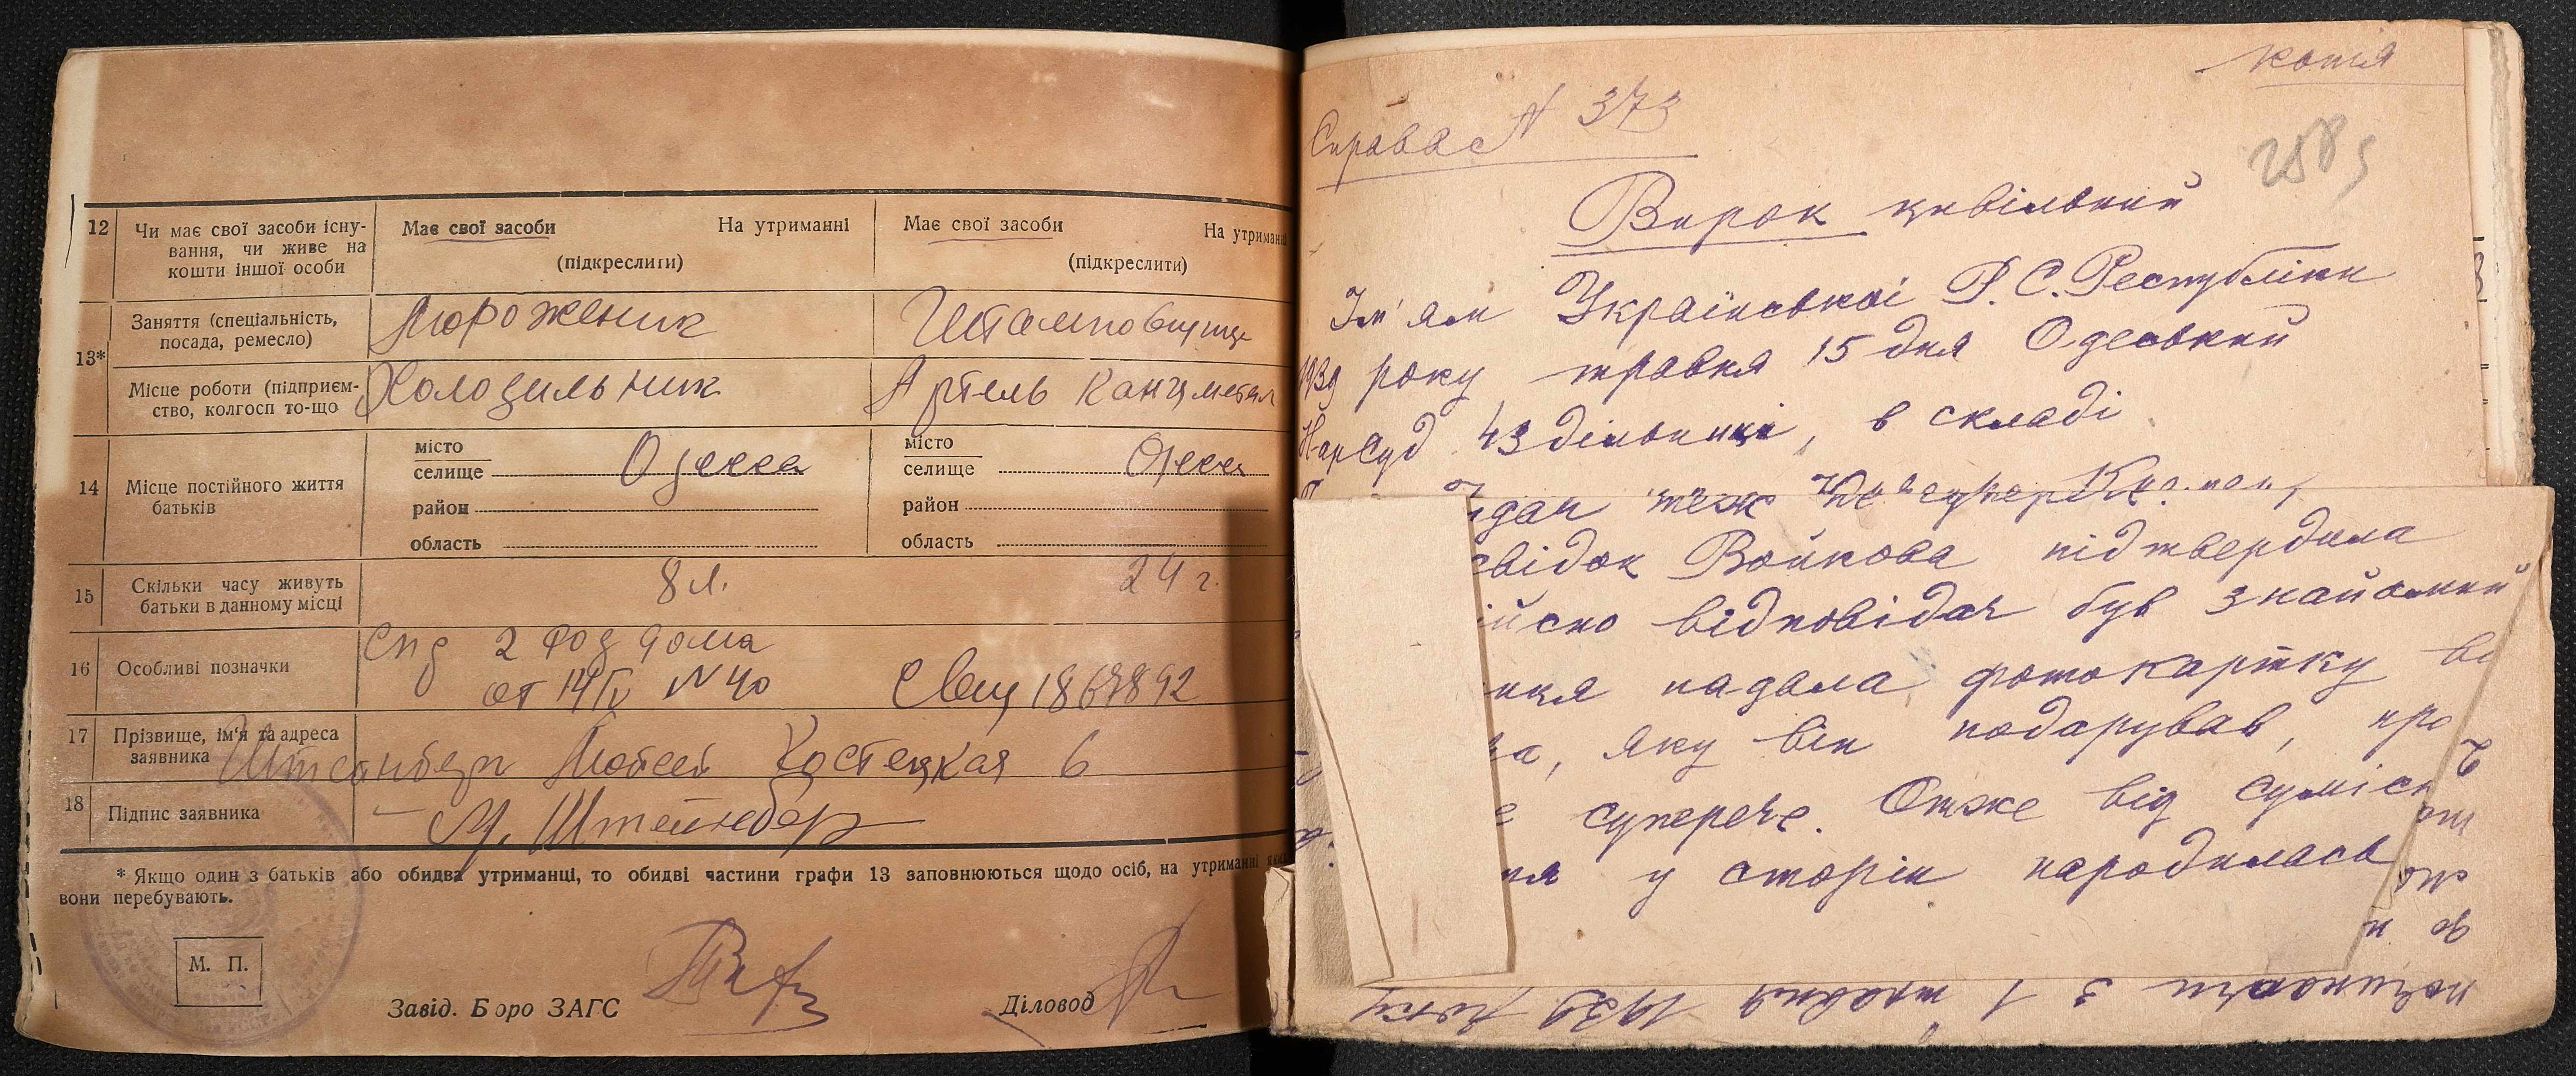 12
Чи має свої засоби існу-
вання, чи живе на
кошти іншої особи
Має свої засоби На утриманні
(підкреслити)
Має свої засоби На утриманні
(підкреслити)
13*
Заняття (спеціальність,
посада, ремесло)
Мороженик
Штамповщица
Місце роботи (підприєм-
ство, колгосп то-що
Холодильник
Артель Канцметал
14
Місце постійного життя
батьків
місто
селище Одесса
район
область
місто
селище Одесса
район
область
15
Скільки часу живуть
батьки в данному місці
8 л.
24 г.
16
Особливі позначки
Спр 2 род дома
от 14/IV N 40 Свид 1869892
17
Прізвище, ім'я та адреса
заявника
Штейнберг Мойсей Костецкая 6
18
Підпис заявника
М. Штейнберг
* Якщо один з батьків або обидва утриманці, то обидві частини графи 13 заповнюються щодо осіб, на утриманні яких
вони перебувають.
М. П.
Завід. Бюро ЗАГС
Діловод
копія
Справа N 373
258
Вирок цивільний
Ім'ям Української Р. С. Республіки
1939 року травня 15 дня Одеський
Нарсуд 43 дільниці, в складі
теж не
свідок Войкова підтвердила
відповідач був знайомий
надала фотокартку
яку він подарував, про
супереч. Отже від
у сторін народилась
починаючи з 1 травня 1939 року